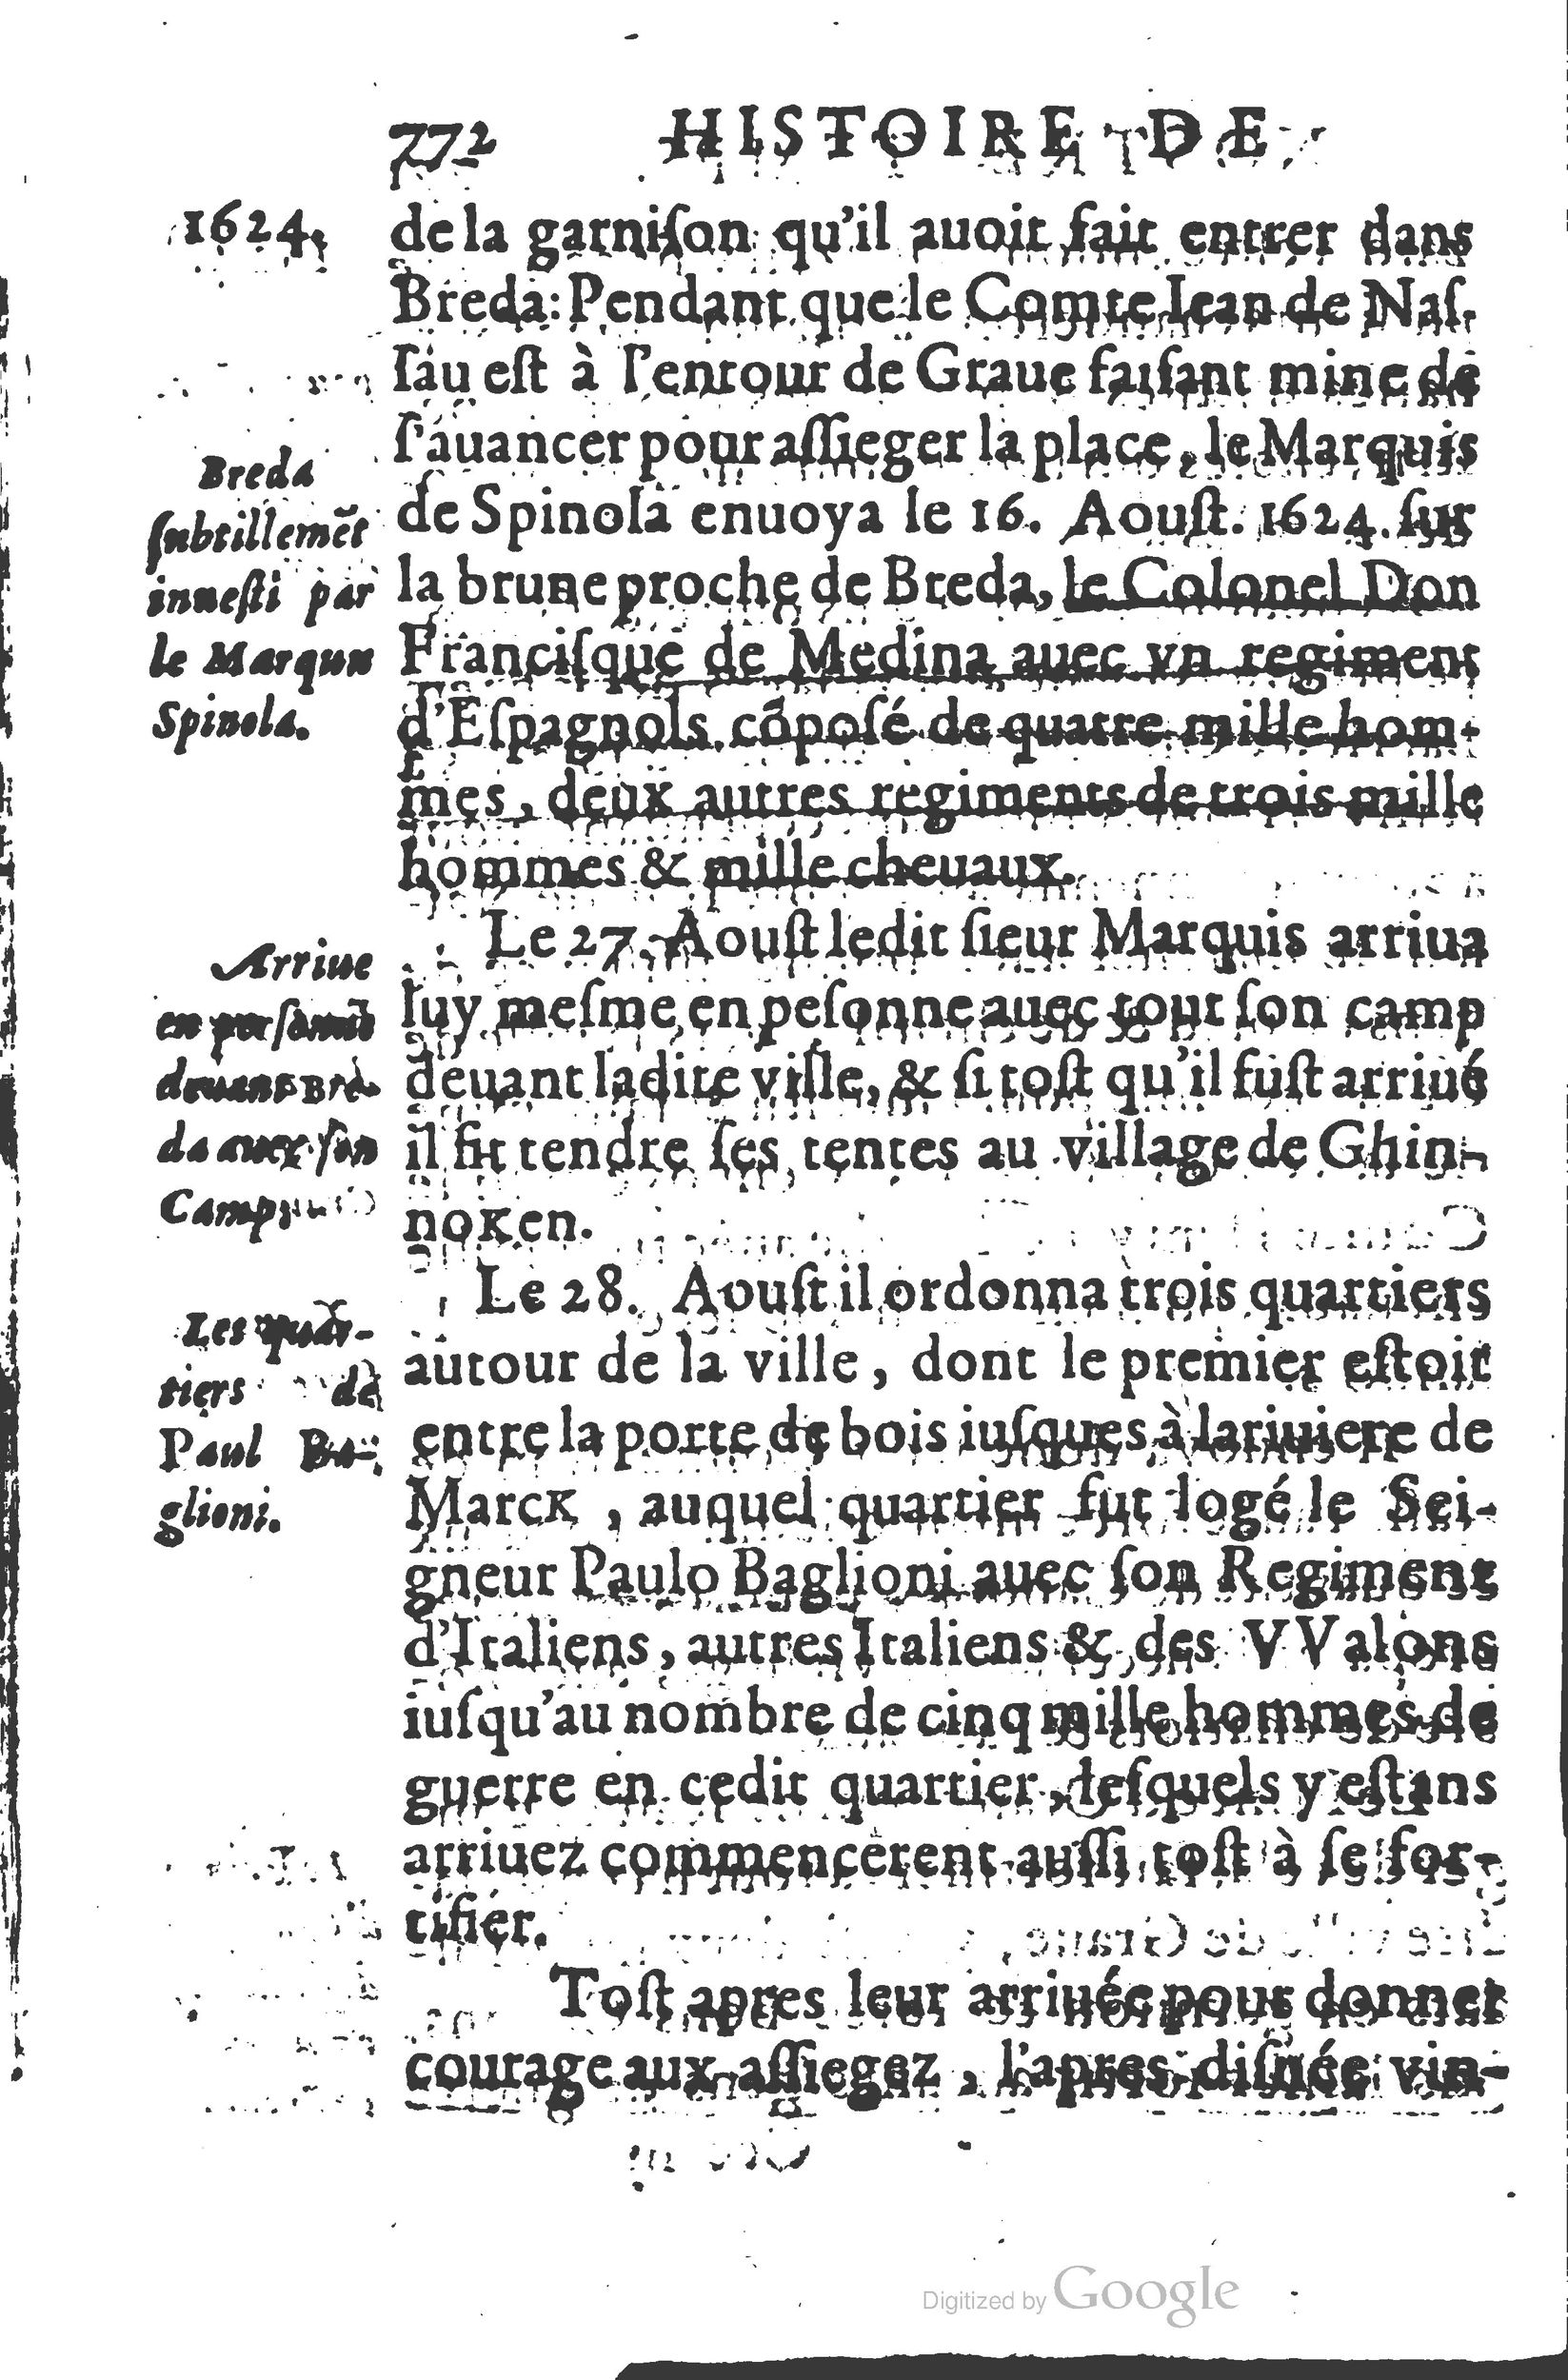 772 HISTOIRE DE
1624.
de la garniſon qu'il auoit fait entrer dans
Breda: Pendant que le Comte Iean de Naſ-
ſau eſt à l'entour de Graue faiſant mine de
ſ'auancer pour aſſieger la place, le Marquis
de Spinola enuoya le 16. Aouſt. 1624. ſur
la brune proche de Breda, le Colonel Don
Franciſque de Medina auec vn regiment
d'Eſpagnols cõpoſé de quatre mille hom-
mes, deux autres regiments de trois mille
hommes & mille cheuaux.
Breda
ſubtillemēt
inueſti par
le Marquis
Spinola.
Le 27. Aouſt ledit ſieur Marquis arriua
luy meſme en peſonne auec tout ſon camp
deuant ladite ville, & ſi toſt qu'il fuſt arriué
il fit tendre ſes tentes au village de Ghin-
noKen.
Arriue
en perſonne
deuant Bre-
da auec ſon
Camp
Le 28. Aouſt il ordonna trois quartiers
autour de la ville, dont le premier eſtoit
entre la porte de bois iuſques à lariuiere de
MarcK, auquel quartier fut logé le Sei-
gneur Paulo Baglioni auec ſon Regiment
d'Italiens, autres Italiens & des VValons
iuſqu'au nombre de cinq mille hommes de
guerre en cedit quartier, deſquels y eſtans
arriuez commencerent auſſi toſt à ſe for-
tifier.
Les quar-
tiers de
Paul Ba-
glioni.
Toſt apres leur arriuée pour donner
courage aux aſſiegez, l'apres diſnée vin-
Digitized by Google